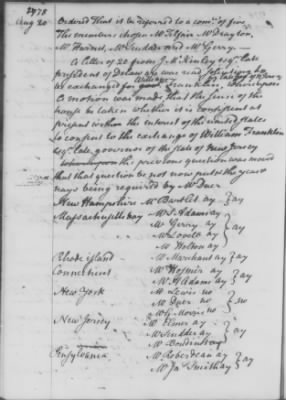 1778
Aug 20
Ordered That it be referred to a com.e of five
The members chosen Mr Telfair Mr Drayton,
Mr Harvie, Mr Scudder and Mr Gerry.—
A letter of 20 from J. McKinley esqr. late
president of Delaware was read
an exchange for William Franklin, whereupon
A motion was made that the sense of the
house be taken whether it is consistent at
present with the interest of the united states
to consent to the exchange of William Franklin
esqr. late governor of the state of new Jersey
whereupon the previous question was moved
that that question be not now put & the yeas &
nays being required by Mr Duer
New Hampshire Mr Bartlet ay } ay
Massachusetts bay Mr S. Adams ay
Mr Gerry ay
Mr Lovell ay
Mr Holten ay
} ay
Rhode island Mr Marchant ay } ay
Connecticut Mr Hosmer ay
Mr A Adams ay
} ay
New York Mr Lewis no
Mr Duer no
Mr G Morris no
} no
New Jersey Mr Elmer ay
Mr Scudder ay
Mr Boudinot ay
} ay
Pensylvania Mr Roberdeau ay
Mr Ja Smith ay
} ay